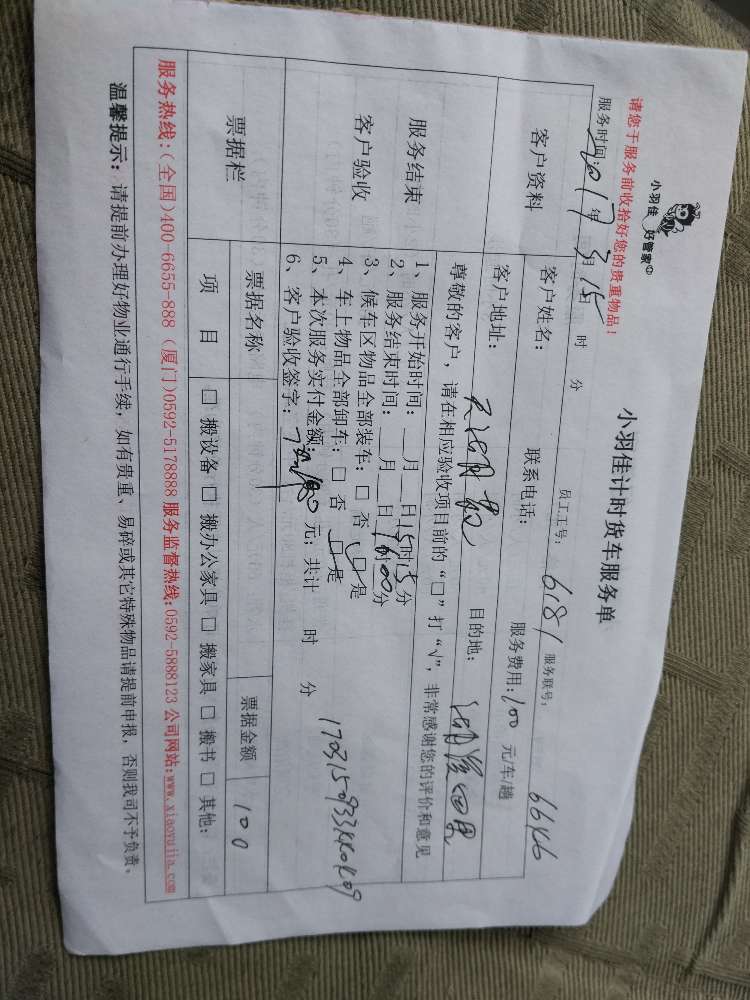 小羽佳 好管家
小羽佳计时货车服务单
请您于服务前收拾好您的贵重物品！
员工工号：6181 服务联号：
服务时间：2017年3月15 时 分
客户资料
客户姓名： 联系电话： 服务费用：100 元/车/趟
客户地址： 目的地：
尊敬的客户，请在相应验收项目前的“□”打“√”，非常感谢您的评价和意见
服务结束
客户验收
1、服务开始时间：__月__日15时15分
2、服务结束时间：__月__日16时00分
3、候车区物品全部装车：□ 否 □ 是
4、车上物品全部卸车：□ 否 □ 是
5、本次服务实付金额： 元；共计 时 分
6、客户验收签字：
票据栏
票据名称 票据金额 100
项 目 □ 搬设备 □ 搬办公家具 □ 搬家具 □ 搬书 □ 其他：
服务热线：(全国)400-6655-888 (厦门)0592-5178888 服务监督热线：0592-5888123 公司网站：www.xiaoyujia.com
温馨提示：请提前办理好物业通行手续，如有贵重、易碎或其它特殊物品请提前申报，否则我司不予负责。